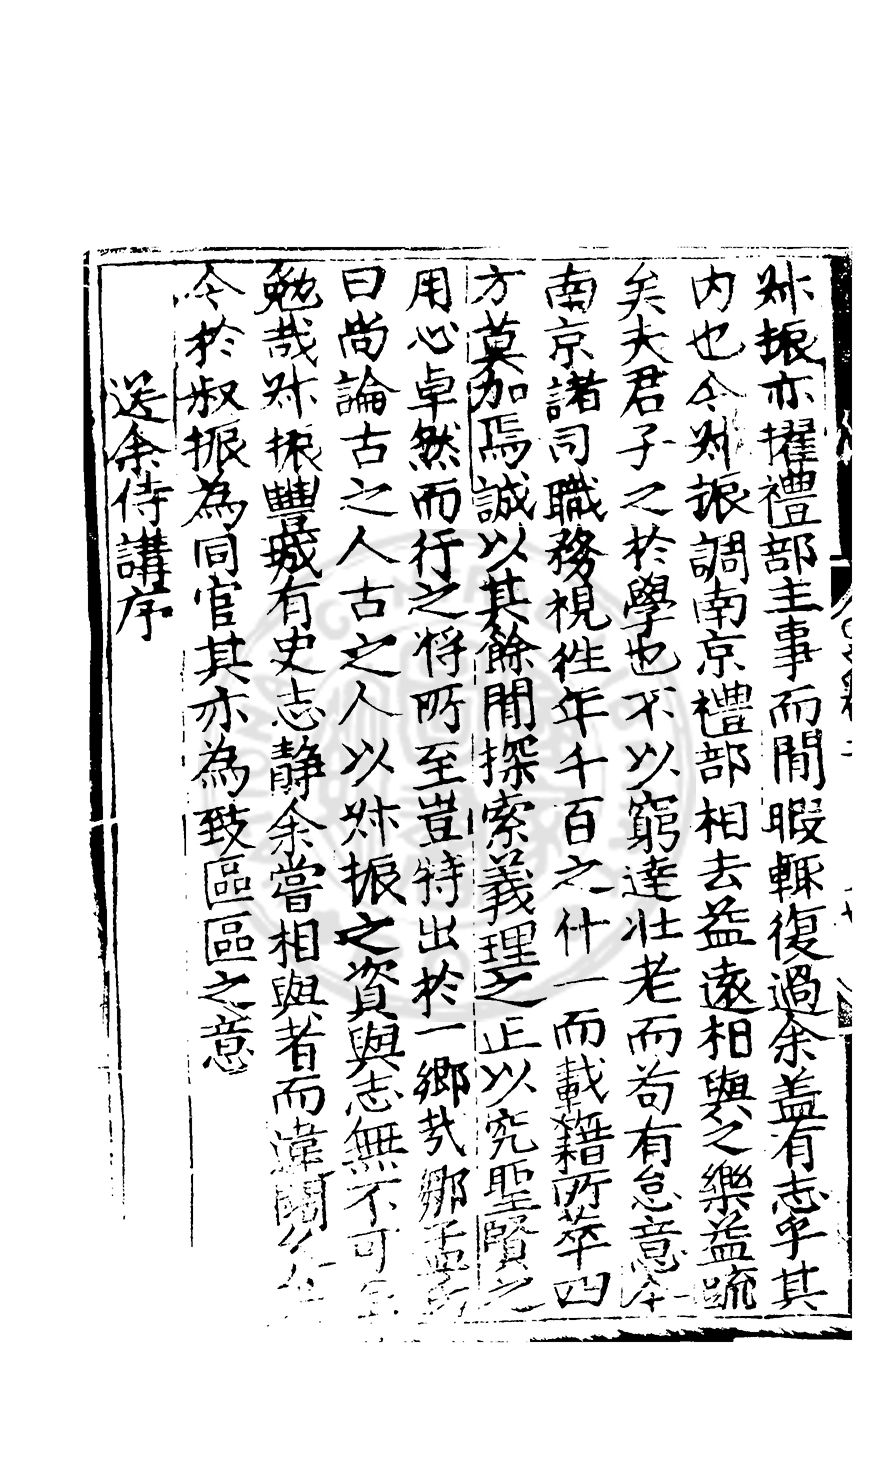 叔振亦擢禮部主事而閒暇輒復過余盖有志乎其
内也今叔振調南京禮部相去益遠相與之樂益疏
矣夫君子之於學也不以窮達壮老而苟有怠意今
南京諸司職務視徃年千百之什一而載籍所萃四
方莫加焉誠以其餘閒探索義理之正以究聖賢之
用心卓然而行之将所至豈特出於一鄉哉鄒孟
曰尚論古之人古之人以叔振之資與志無不可
勉哉叔振豐城有史志靜余嘗相與者而違闊
今於叔振為同官其亦為致區區之意
送余侍講序